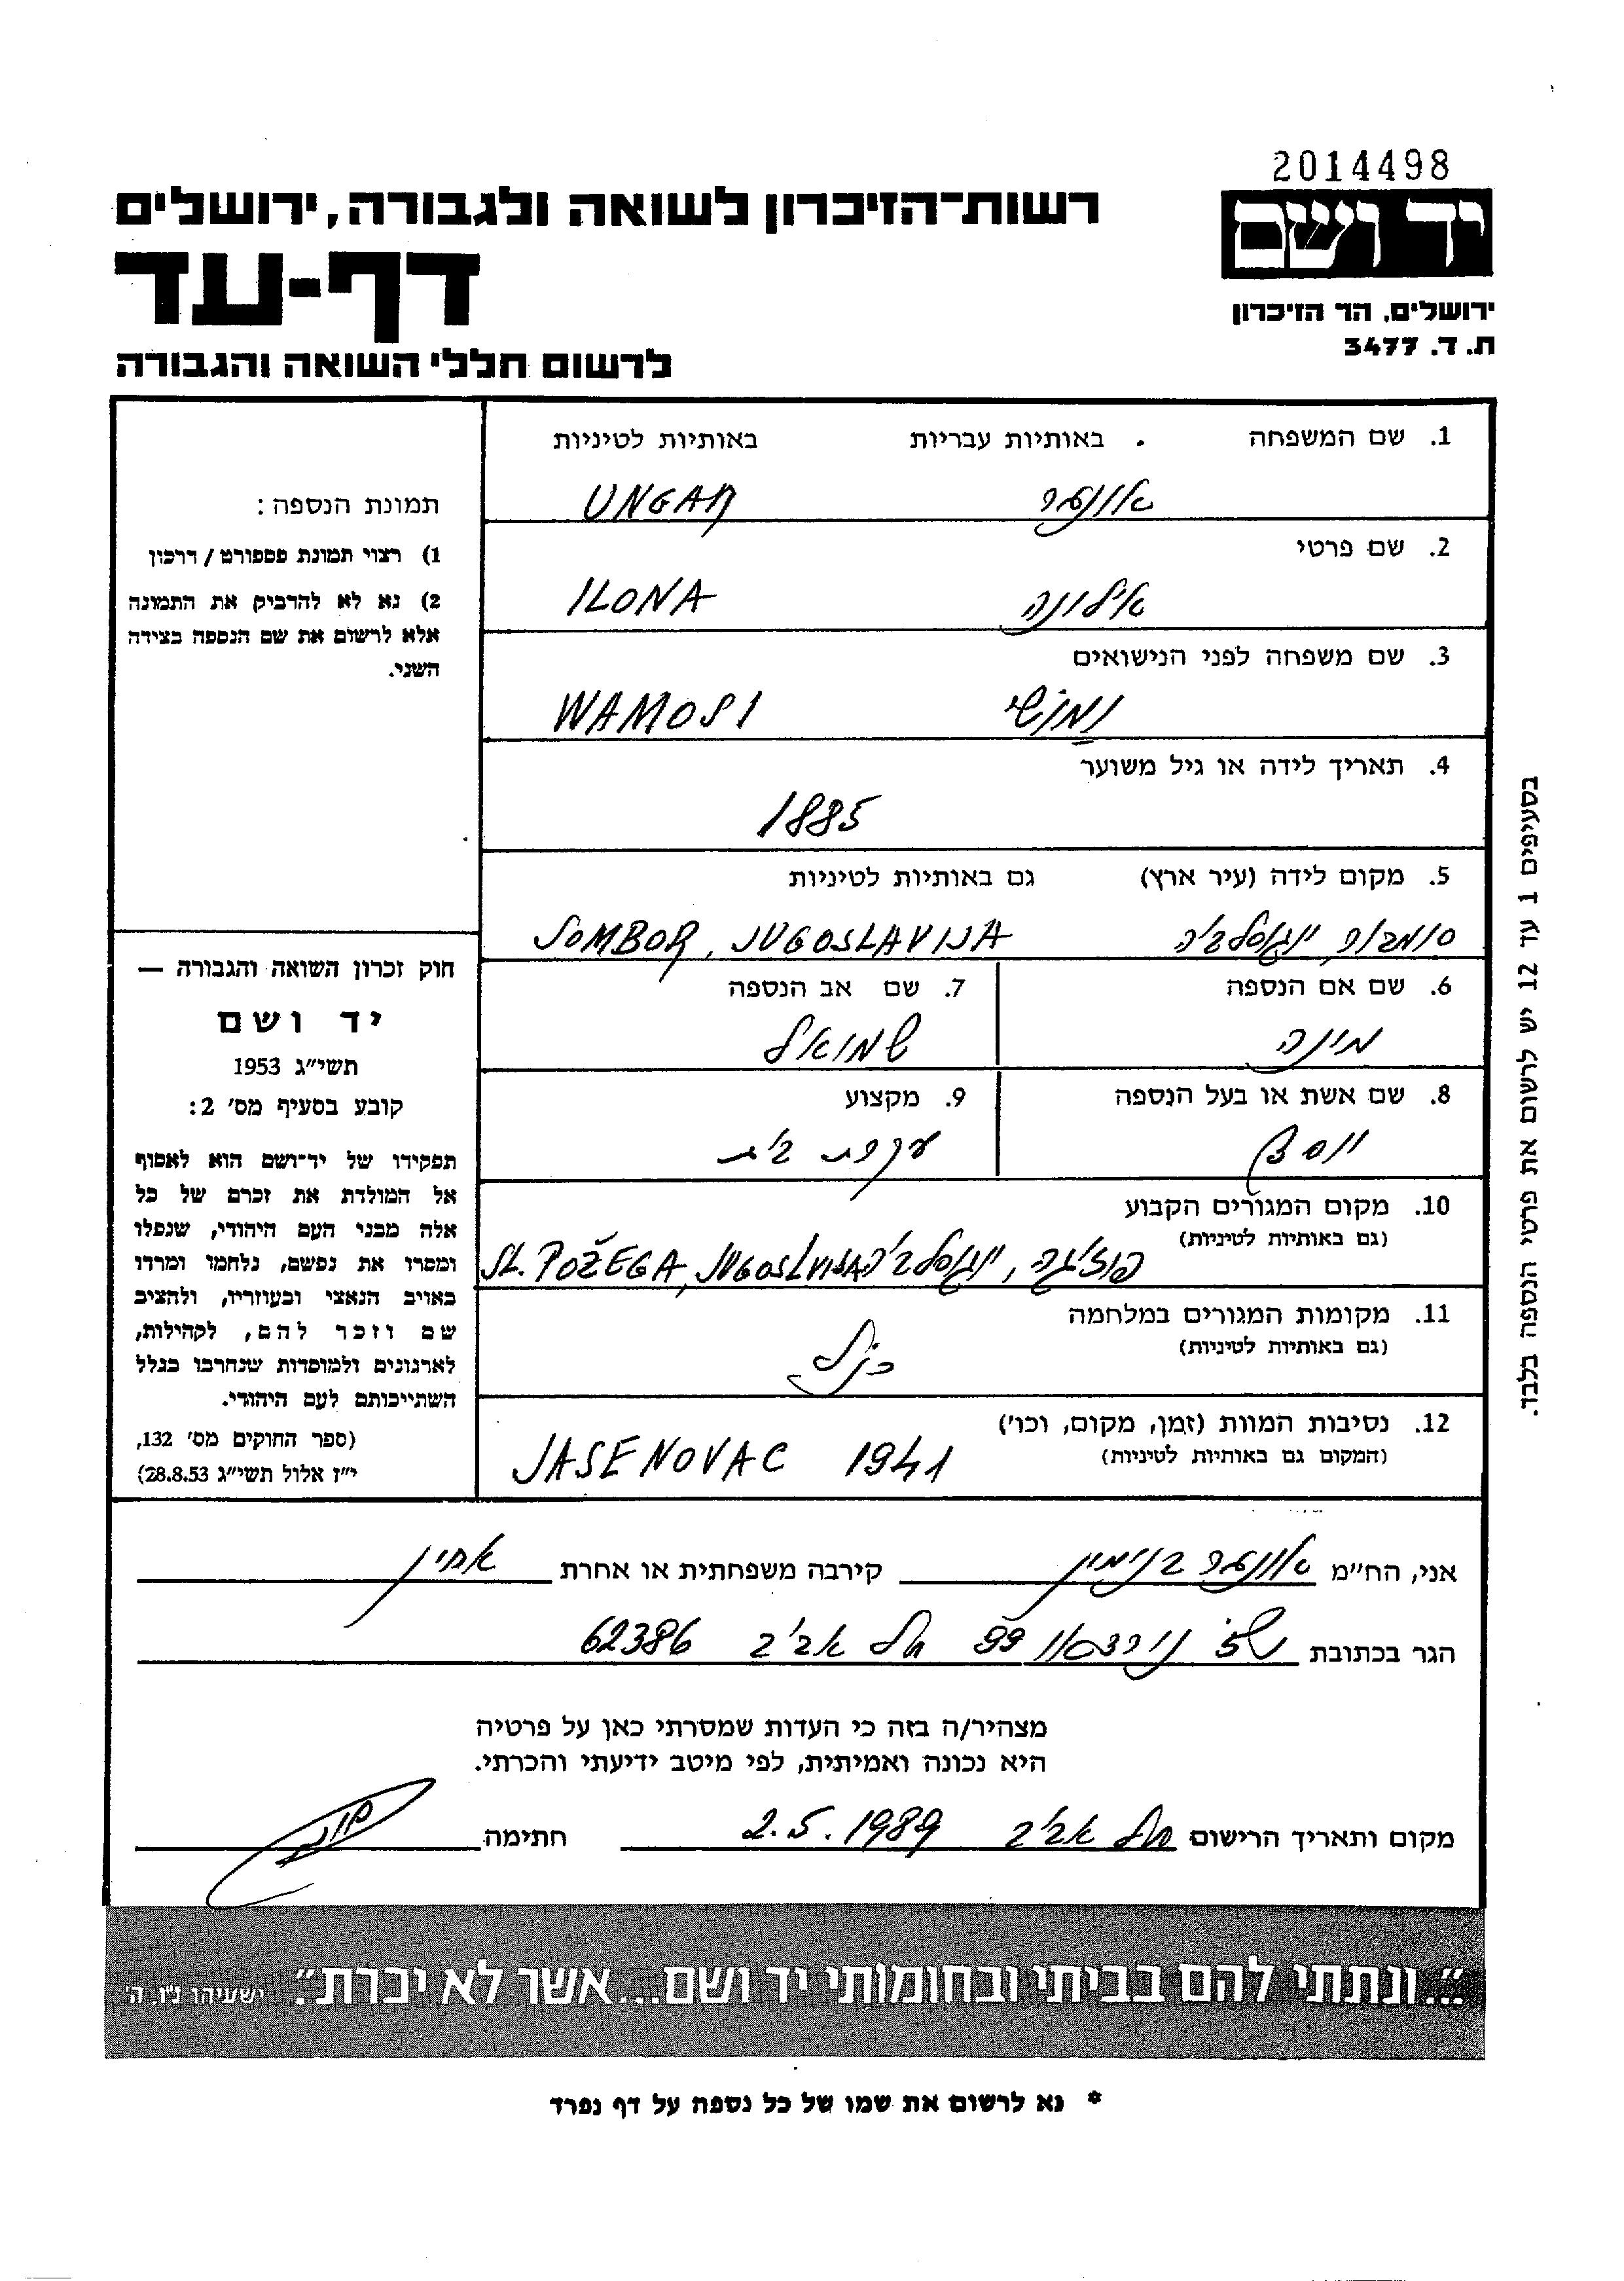 2014498
יד ושם
רשות־הזיכרון לשואה ולגבורה, ירושלים
דף-עד
לרשום חללי השואה והגבורה
ירושלים, הר הזיכרון
ת. ד. 3477
1. שם המשפחה באותיות עבריות באותיות לטיניות
אונגר UNGAR
2. שם פרטי
אילונה ILONA
3. שם משפחה לפני הנישואים
ומושי WAMOSI
4. תאריך לידה או גיל משוער
1885
5. מקום לידה (עיר ארץ) גם באותיות לטיניות
סומבור, יוגוסלביה SOMBOR, JUGOSLAVIJA
6. שם אם הנספה 7. שם אב הנספה
מינה שמואל
8. שם אשת או בעל הנספה 9. מקצוע
יוסף עקרת בית
10. מקום המגורים הקבוע
(גם באותיות לטיניות)
פוז'גה, יוגוסלביה SL. POŽEGA, JUGOSLVIJA
11. מקומות המגורים במלחמה
(גם באותיות לטיניות)
כנ"ל
12. נסיבות המוות (זמן, מקום, וכו')
(המקום גם באותיות לטיניות)
JASENOVAC 1941
תמונת הנספה:
1) רצוי תמונת פספורט / דרכון
2) נא לא להדביק את התמונה
אלא לרשום את שם הנספה בצידה
השני.
חוק זכרון השואה והגבורה —
יד ושם
תשי"ג 1953
קובע בסעיף מס' 2:
תפקידו של יד־ושם הוא לאסוף
אל המולדת את זכרם של כל
אלה מבני העם היהודי, שנפלו
ומסרו את נפשם, נלחמו ומרדו
באויב הנאצי ובעוזריו, ולהציב
שם וזכר להם, לקהילות,
לארגונים ולמוסדות שנחרבו בגלל
השתייכותם לעם היהודי.
(ספר החוקים מס' 132,
י"ז אלול תשי"ג 28.8.53)
בסעיפים 1 עד 12 יש לרשום את פרטי הנספה בלבד.
אני, הח"מ אונגר בנימין קירבה משפחתית או אחרת אחיין
הגר בכתובת 99 תל אביב 62386
מצהיר/ה בזה כי העדות שמסרתי כאן על פרטיה
היא נכונה ואמיתית, לפי מיטב ידיעתי והכרתי.
מקום ותאריך הרישום תל אביב 2.5.1989 חתימה
"...ונתתי להם בביתי ובחומותי יד ושם...אשר לא יכרת." ישעיהו נ"ו, ה'
* נא לרשום את שמו של כל נספה על דף נפרד